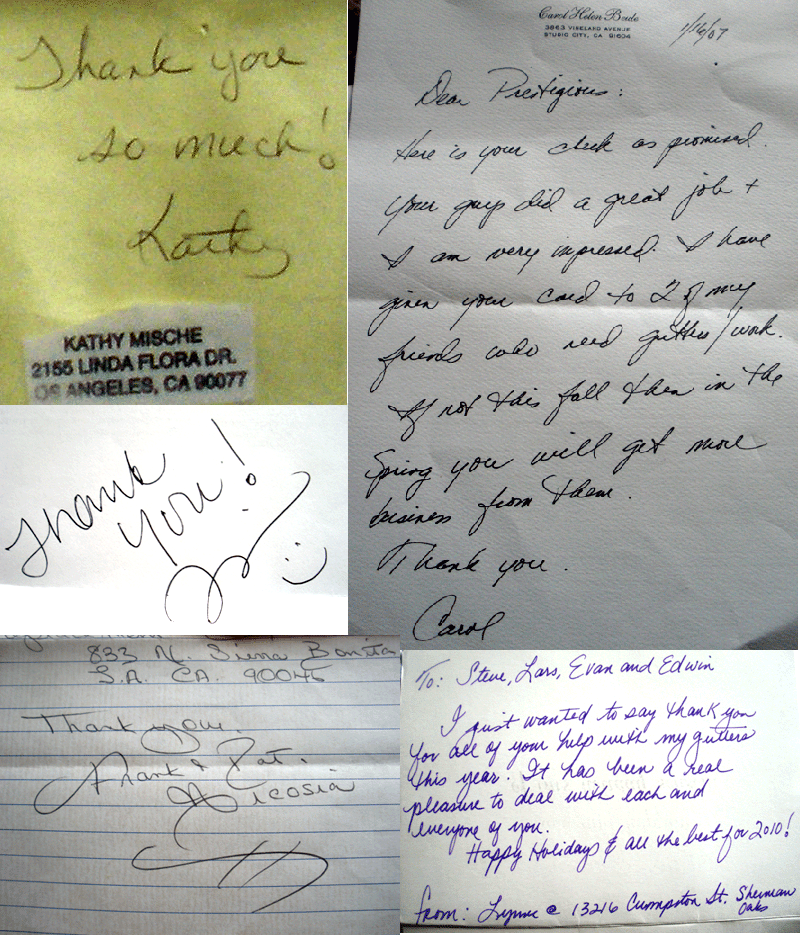 Thank you
so much!
Kathy
KATHY MISCHE
2155 LINDA FLORA DR.
OS ANGELES, CA 90077
Carol Helen Bude
3863 VINELAND AVENUE
STUDIO CITY, CA 91604
1/16/07
Dear Prestigious:
Here is your check as promised.
Your guys did a great job +
I am very impressed. I have
given your card to 2 of my
friends who need gutters/work.
If not this fall then in the
Spring you will get more
business from them.
Thank you.
Carol
Thank
you!
833 N. Sierra Bonita
L.A. CA. 90045
Thank you.
Frank & Pat.
Nicosia
To: Steve, Lars, Evan and Edwin
I just wanted to say thank you
for all of your help with my gutters
this year. It has been a real
pleasure to deal with each and
everyone of you.
Happy Holidays & all the best for 2010!
From: Lynne @ 13216 Cumpston St. Sherman
Oaks